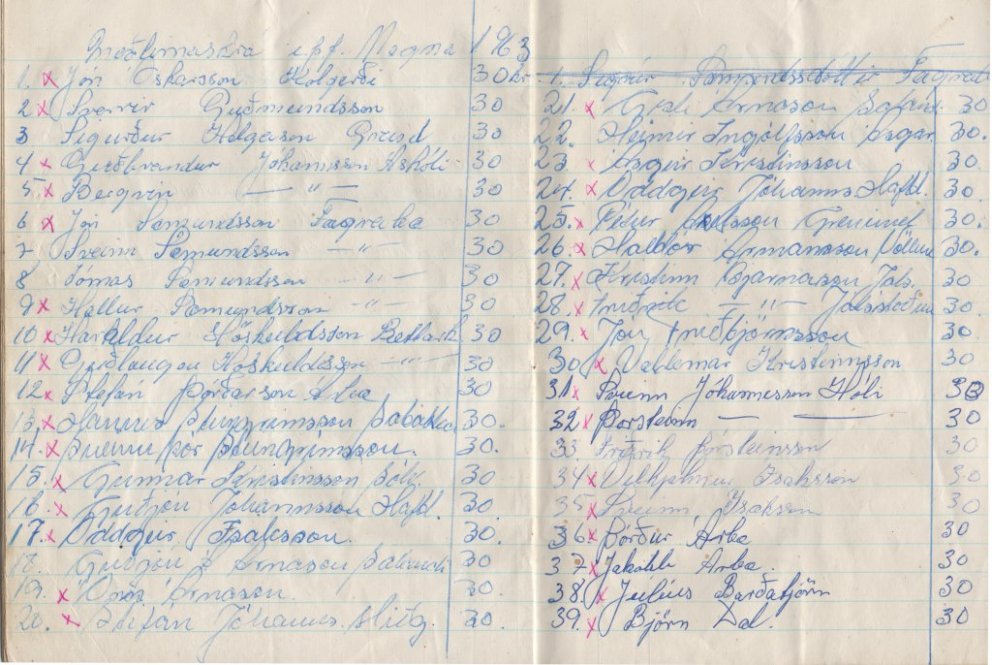 Meðlimaskrá u.f.f. Magna 1963
1. x Jón Óskarsson Holgerði 30kr
2 x Sverrir Guðmundsson 30
3 Sigurður Helgason Grund 30
4 x Guðbrandur Jóhannsson Áshóli 30
5. x Bergvin — " — 30
6 x Jón Semundsson Fagrabæ 30
7 Sveinn Semundsson — " — 30
8 Tómas Semundsson — " — 30
9 x Hallur Semundsson — " — 30
10 x Haraldur Höskuldsson 30
11 x Guðlaugur Höskuldsson — " — 30
12 x Stefán Þórðarson Árbæ 30
13. x Hannes Steingrímsson 30.
14. x Þór Steingrímsson. 30.
15. x Gunnar Kristinsson 30
16. x Guðjón Jóhannsson Hafl. 30.
17. x Oddgeir Ísaksson. 30.
18. Guðjón Árnason 30
19. x Árnason. 30
20. x Stefán Jóhanns. Miðg. 30.
1. Sigmundsdóttir
21. x Árnason 30
22. Heimir Ingólfsson 30.
23. x Ásgeir Kristinsson 30
24. x Oddgeir Jóhanns Hafl. 30.
25. x Pétur Axelsson Grenivík 30.
26. x Halldór Ármannsson 30.
27. x Kristinn Bjarnason 30.
28. x Friðrik — " — 30
29. x Jón Friðbjörnsson 30.
30 x Valdemar Kristinsson 30
31. x Sveinn Jóhannesson Hóli 30
32 x Þorsteinn — — 30
33. Friðrik Þorsteinsson 30
34 x Vilhjálmur Ísaksson 30
35 x Sveinn Ísaksson 30
36 x Þórður Árbæ 30
37 x Jakob Árbæ. 30
38. x Júlíus Barðatjörn 30
39. x Björn Dal. 30